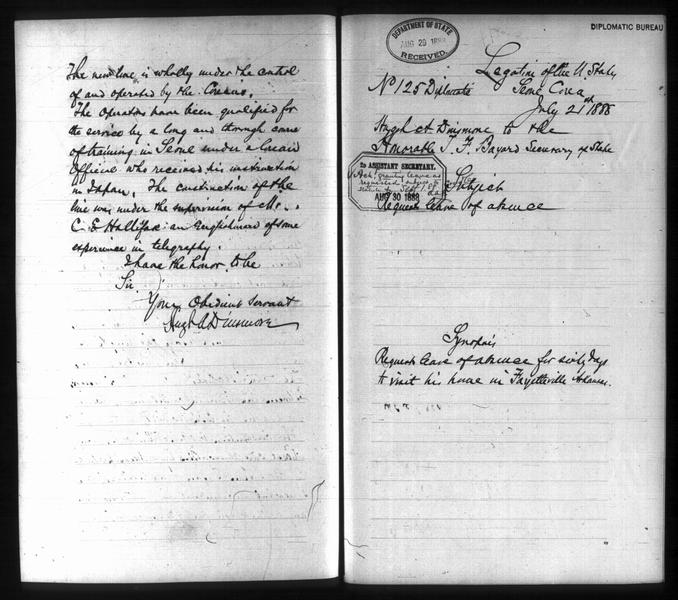 The new line is wholly under the control
of and operated by the Coreans.
The Operators have been qualified for
the service by a long and thorough course
of training in Seoul under a
Officer who received his instruction
in Japan. The construction of the
line was under the supervision of Mr.
C E Hallifax an Englishman of some
experience in telegraphy.
I have the honor to be
Sir
Your Obedient Servant
Hugh A Dinsmore
DEPARTMENT OF STATE
AUG 29 1888
RECEIVED.
DIPLOMATIC BUREAU
Legation of the U. States
No 125 Diplomatic Seoul Corea
July 21st 1888
Hugh A Dinsmore to the
Honorable T. F. Bayard Secretary of State
2D ASSISTANT SECRETARY.
Ack: granting leave as
requested subject to
AUG 30 1888
Subject
Requests leave of absence
Synopsis
Requests leave of absence for sixty days
to visit his home in Fayetteville Arkansas.